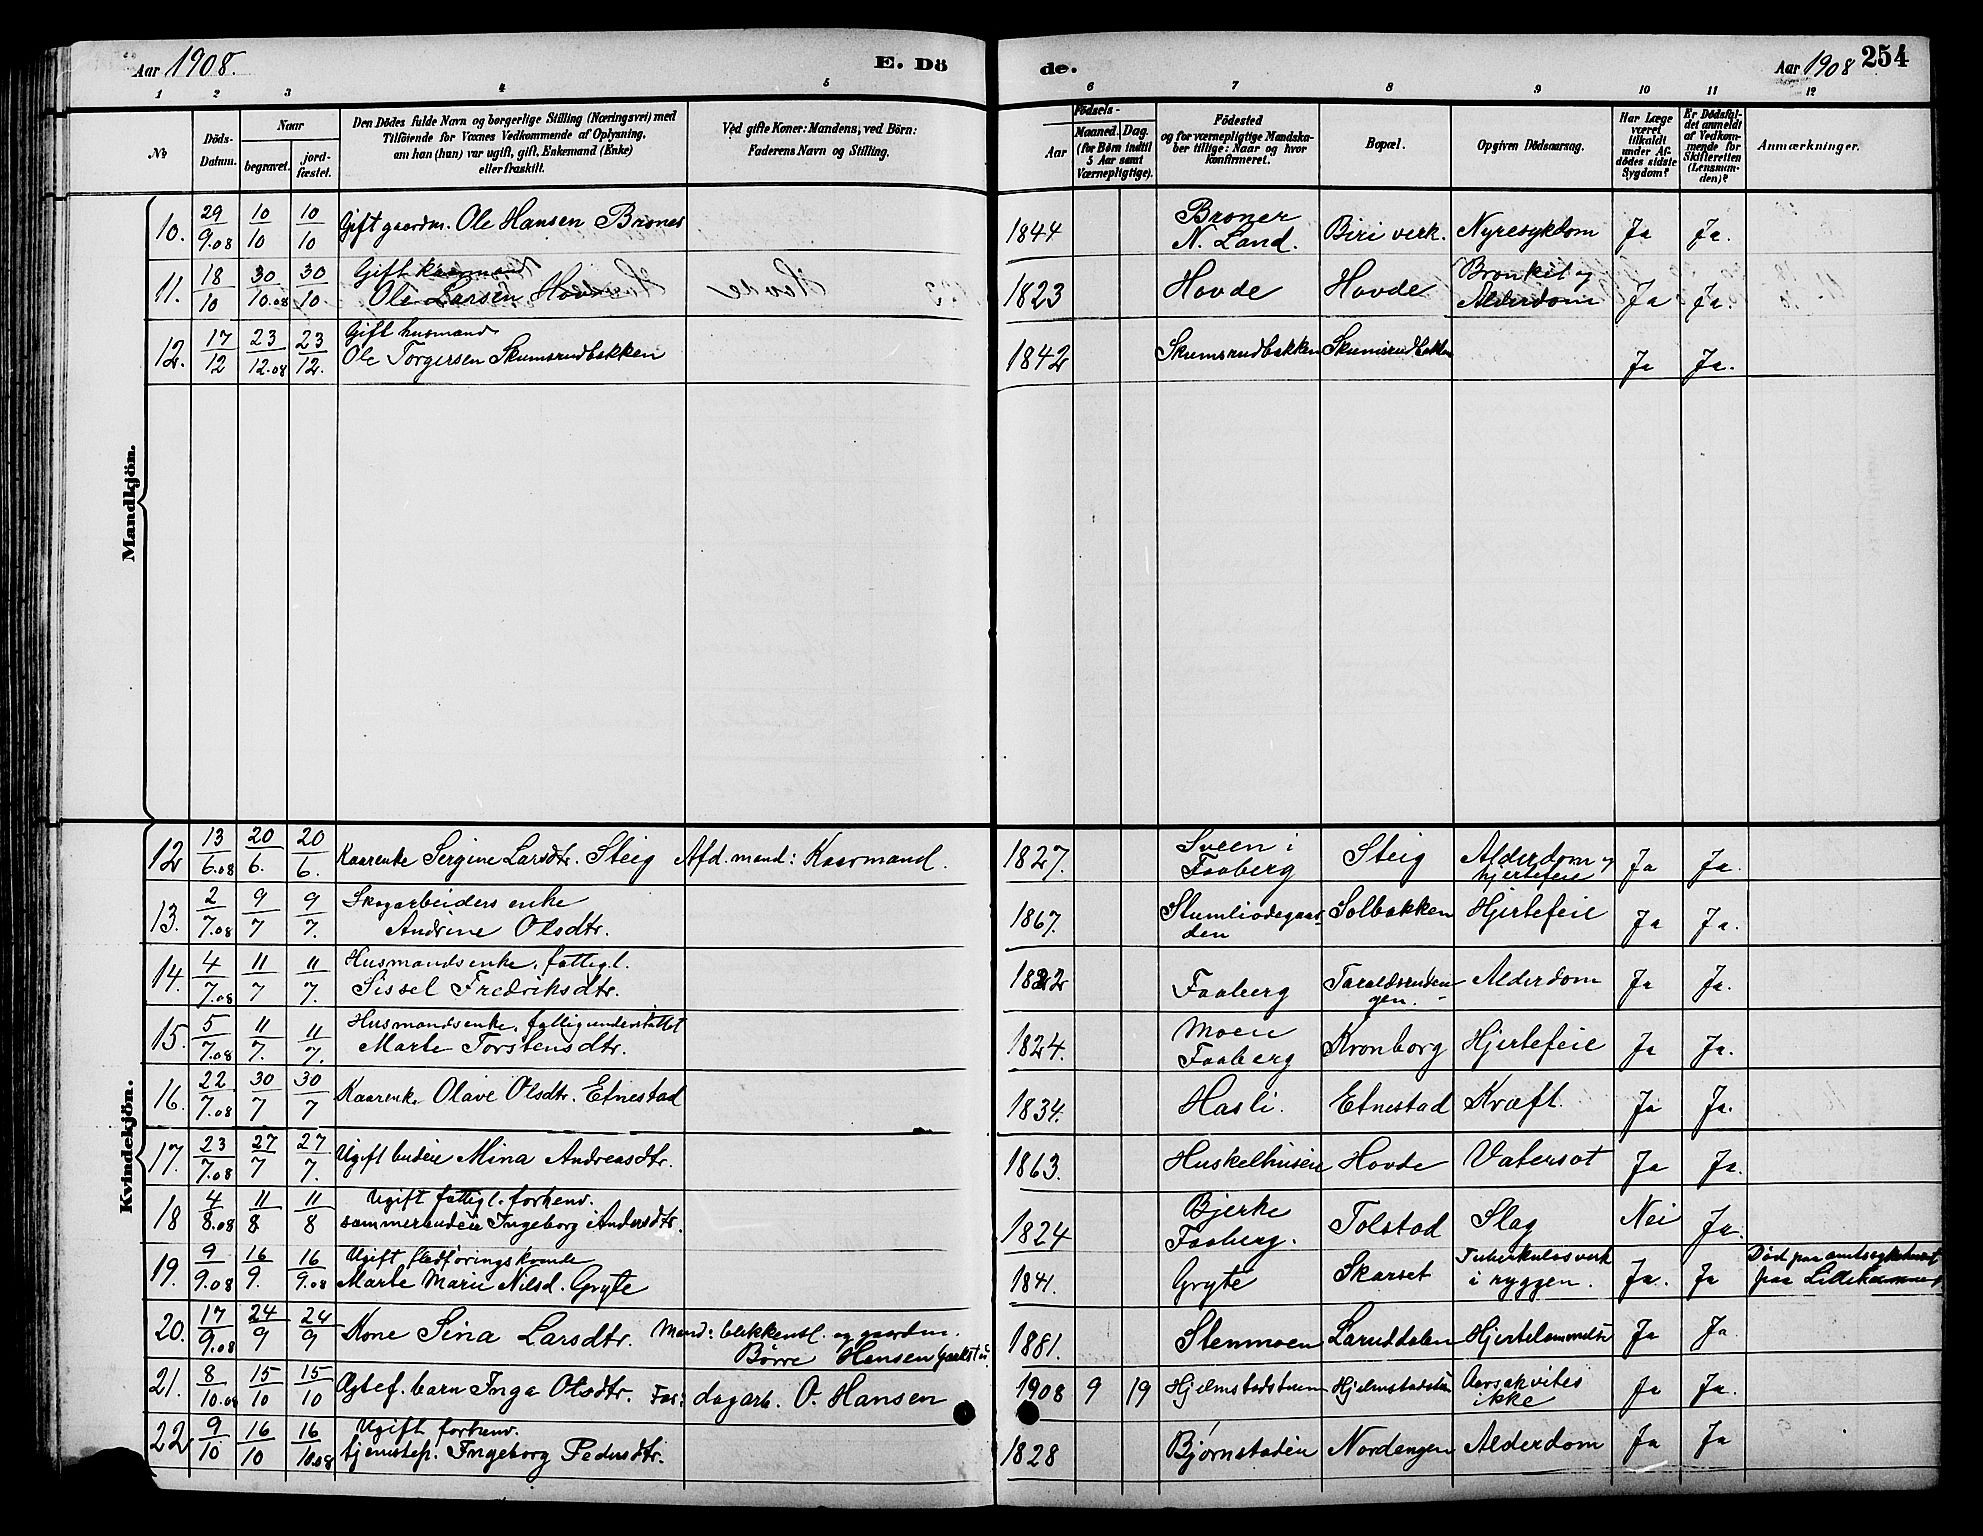 Aar 1908. E. Dö de. Aar 1908 254
1 2 3 4 5 6 7 8 9 10 11 12
№ Döds-Datum. Naar begravet. jord-fæstet. Den Dödes fulde Navn og borgerlige Stilling (Næringsvei) med Tilföiende for Voxnes Vedkommende af Oplysning, om han (hun) var ugift, gift, Enkemand (Enke) eller fraskilt. Ved gifte Koner: Mandens, ved Börn: Faderens Navn og Stilling. Födsels- Aar Maaned. Dag. (for Börn indtil 5 Aar samt Værnepligtige). Födested og for værnepligtige Mandskaber tillige: Naar og hvor konfirmeret. Bopæl. Opgiven Dödsaarsag. Har Læge været tilkaldt under Afdödes sidste Sygdom? Er Dödsfaldet anmeldt af Vedkommende for Skifteretten (Lensmanden)? Anmærkninger.
Mandkjön.
10. 29/9.08 10/10 10/10 Gift gaardm. Ole Hansen Broner 1844 Broner N. Land. Biri verk. Nyresykdom Ja Ja.
11. 18/10 30/10.08 30/10 Gift kaarmand Ole Larsen Hovde 1823 Hovde Hovde Bronkit og Alderdom Ja Ja.
12. 17/12 23/12.08 23/12. Gift husmand Ole Torgersen Skumsrudbakken 1842 Skumsrudbakken Skumsrudbakken Ja Ja.
Kvindekjön.
12 13/6.08 20/6. 20/6. Kaarenke Sergine Larsdtr. Steig Afd. mand: Kaarmand. 1827. Sveen i Faaberg Steig Alderdom og hjertefeie Ja Ja.
13. 2/7.08 9/7 9/7. Skogarbeiders enke Andrine Olsdtr. 1867. Stumliødegaarden Solbakken Hjertefeie Ja Ja.
14. 4/7.08 11/7 11/7. Husmandsenke, fattigl. Sissel Fredriksdtr. 1822 Faaberg Taraldsrudengen. Alderdom Ja Ja.
15. 5/7.08 11/7. 11/7. Husmandsenke, fattigunderstøttet Marte Torstensdtr. 1824. Moen Faaberg Kronborg Hjertefeie Ja Ja.
16. 22/7.08 30/7 30/7 Kaarenk. Olave Olsdtr. Etnestad 1834. Hasli. Etnestad Kræft. Ja Ja.
17. 23/7.08 27/7 27/7. Ugift budeie Mina Andreasdtr. 1863. Huskelhusen Hovde Vatersot Ja Ja.
18 4/8.08 11/8 11/8 Ugift fattigl. forhenv. sommerbudeie Ingeborg Andersdtr. 1824 Bjerke Faaberg. Tolstad Slag Nei Ja.
19. 9/9.08 16/9. 16/9.08 Ugift fledføringskvinde Marte Marie Nilsd. Gryte 1841. Gryte Skarset Tuberkuløs verk i ryggen. Ja. Ja Død paa amtssykehuset paa Lillehammer
20. 17/9.08 24/9 24/9 Kone Sina Larsdtr. Mand: blikkensl. og gaardm. Børre Hansen 1881. Stenmoen Laruddalen Hjertelammelse Ja Ja.
21. 8/10.08 15/10 15/10 Egtef. barn Inga Olsdtr. Far: dagarb. O. Hansen 1908 9 19 Hjelmstadstuen Hjelmstadstuen Aarsak vites ikke Ja Ja.
22 9/10 16/10 16/10.08 Ugift forhenv. tjenstep. Ingeborg Pedersdtr. 1828 Bjørnstadeie Nordengen Alderdom Ja Ja